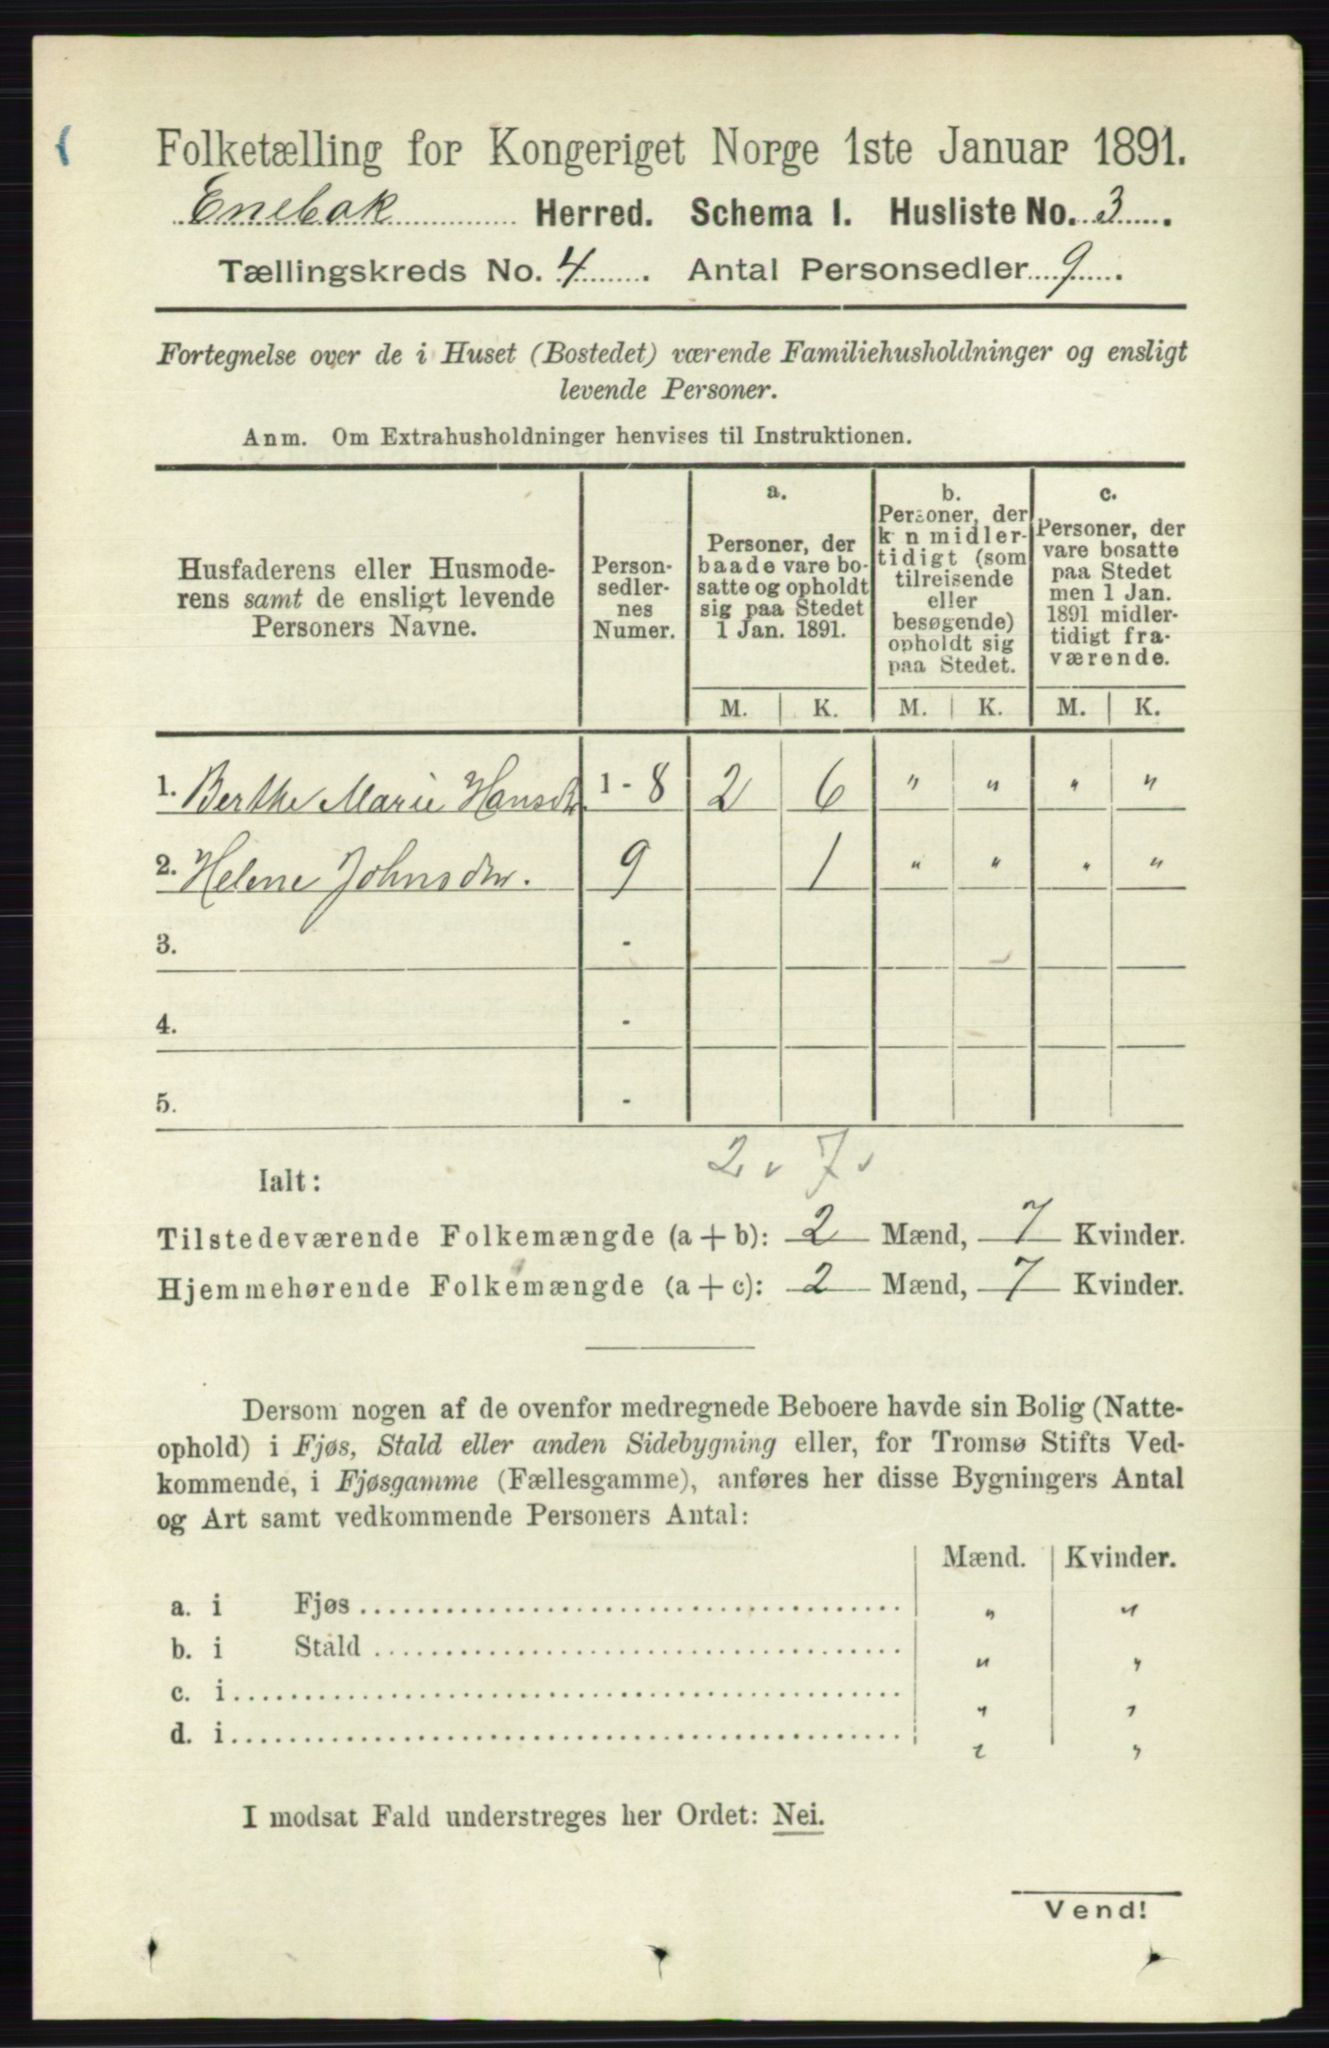 Folketælling for Kongeriget Norge 1ste Januar 1891.
Enebak Herred. Schema I. Husliste No. 3.
Tællingskreds No. 4. Antal Personsedler 9.
Fortegnelse over de i Huset (Bostedet) værende Familiehusholdninger og ensligt
levende Personer.
Anm. Om Extrahusholdninger henvises til Instruktionen.
Husfaderens eller Husmode-
rens samt de ensligt levende
Personers Navne.
Person-
sedler-
nes
Numer.
a.
Personer, der
baade vare bo-
satte og opholdt
sig paa Stedet
1 Jan. 1891.
b.
Personer, der
k n midler-
tidigt (som
tilreisende
eller
besøgende)
opholdt sig
paa Stedet.
c.
Personer, der
vare bosatte
paa Stedet
men 1 Jan.
1891 midler-
tidigt fra-
værende.
M. K. M. K. M. K.
1. Berthe Marie Hansdtr 1 - 8 2 6 " " " "
2. Helene Johnsdtr. 9 1 " " " "
3. -
4. -
5. -
2 7
Ialt:
Tilstedeværende Folkemængde (a + b): 2 Mænd, 7 Kvinder.
Hjemmehørende Folkemængde (a + c): 2 Mænd, 7 Kvinder.
Dersom nogen af de ovenfor medregnede Beboere havde sin Bolig (Natte-
ophold) i Fjøs, Stald eller anden Sidebygning eller, for Tromsø Stifts Ved-
kommende, i Fjøsgamme (Fællesgamme), anføres her disse Bygningers Antal
og Art samt vedkommende Personers Antal:
Mænd. Kvinder.
a. i Fjøs " "
b. i Stald " "
c. i " "
d. i " "
I modsat Fald understreges her Ordet: Nei.
Vend!